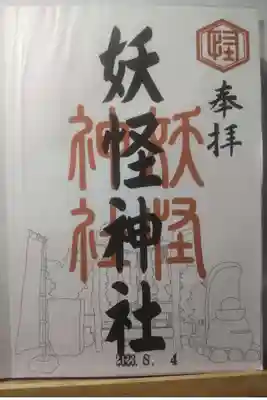 奉拝
妖怪神社
妖怪
神社
2023. 8. 4